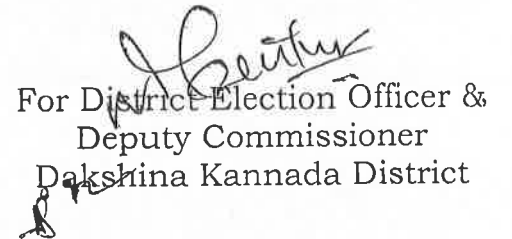 For District Election Officer &
Deputy Commissioner
Dakshina Kannada District